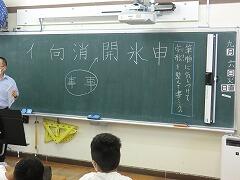 九月六日火
筆順に気をつけて
字形を整えて書こう
イ 向 消 開 氷 申
事